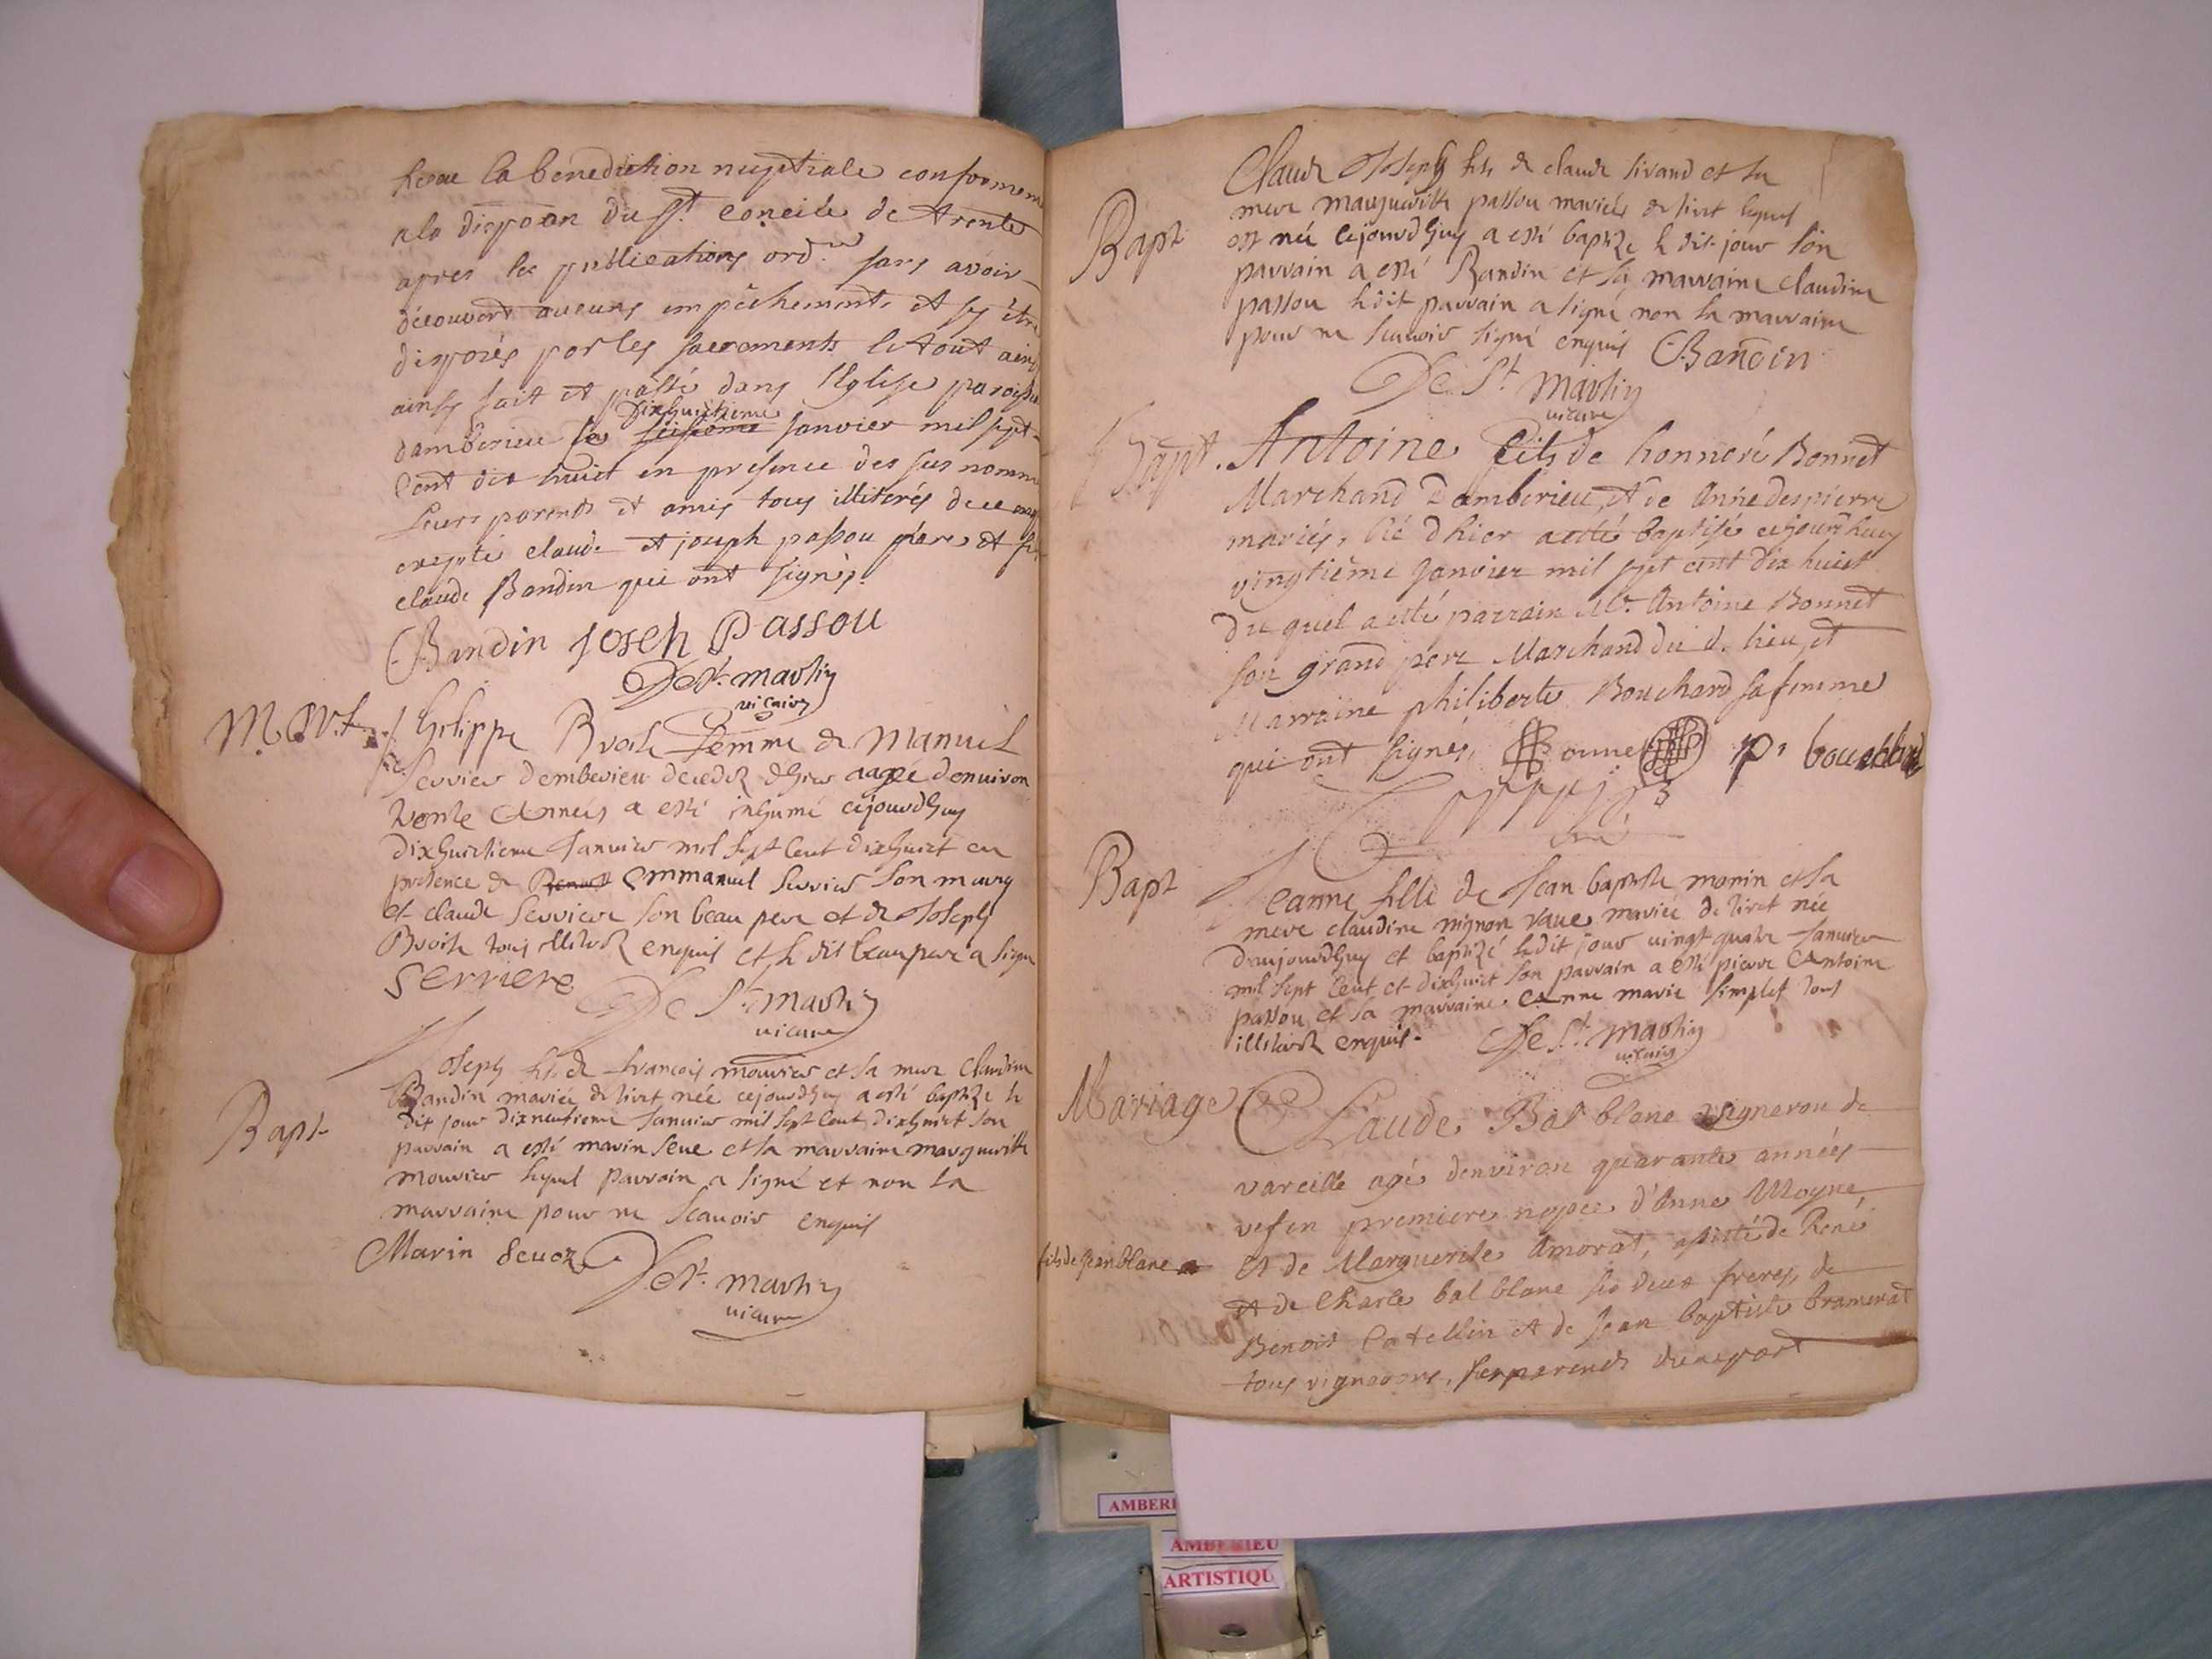 la benediction nuptiale conformem
a la dispoon du St. concile de trente
apres les publications ordres sans avoir
découvert aucuns empêchements et sy être
disposés par les sacrements le tout ains
ainsy fait et passé dans l'Eglise paroissi
damberieu le seisieme dixhuictieme janvier mil sept
cent dix huict en presence des sus nomm
Leurs parents et amis tous illiterés de ce enq
excepté claude et joseph passou père et fi
claude Bandin qui ont signés.
Bandin joseh passou
De St. martin
vicaire
Mort. philippe Bvoile femme de Manuil
Servier dembevieu decedez dhier aagée denuiron
trente Années a esté inhumé cejourdhuy
dixhuictieme Januier mil sept Cent dixhuict en
presence de Emmanuel Servier son mary
et claude Serviere son beau pere et de Joseph
Bvoile tous illiterez enquis et le dit beaupere a signe
serriere
De St. martin
vicaire
Bapt Joseph fils de françois mouvier et sa mere claudine
Bandin mariée de tiret née cejourdhuy a esté baptize le
dit jour dixneufieme Januier mil sept Cent dixhuict son
parrain a esté marin seue et sa marraine marguerite
mouvier lequel parrain a signé et non la
marraine pour ne scauoir enquis
Marin Seuoz
De St. martin
vicaire
Bapt Claude Joseph fils de claude sivand et sa
mere marguerite passou mariés de tiret lequel
est née cejourdhuy a esté baptize le dit jour son
parrain a esté Bandin et sa marraine claudine
passou ledit parrain a signé non la marraine
pour ne scauoir signé enquis Bandin
De St martin
vicaire
Bapt. Antoine fils de honnoré Bonnet
Marchand damberieu, et de Anne despierre
mariés, né d'hier a esté baptisé cejourdhuy
vingtième janvier mil sept cent dix huict
du quel a esté parrain Mr. Antoine Bonnet
son grand père Marchand du d. lieu, et
Marraine philiberte Bouchard sa femme
qui ont signés, Bonnet p. bouchard
Bapt Jeanne fille de Jean baptiste monin et sa
mere claudine mignon vaue mariée de tiret née
daujourdhuy et baptizé ledit jour uingt quatre Januier
mil sept Cent et dixhuict son parrain a esté pierre Antoine
passou et sa marraine Anne marie simplet tous
illiterez enquis. De St. martin
vicaire
Mariage Claude Bal blanc vigneron de
vareille agé denviron quarante années
vef en premiere nopce d'Anne Moyne,
fils de Jean blanc et de Marguerite Amorat, assisté de René
et de Charle bal blanc ses deux freres, de
Benoit Catellin et de Jean baptiste bramerat
tous vignerons, ses parents d'une part
AMBERI
AMBERIEU
ARTISTIQU